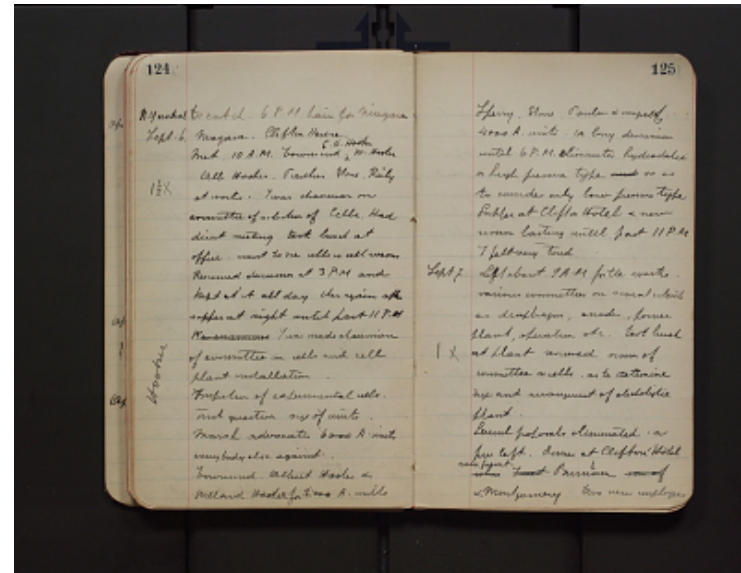 124
to catch 6 P.M. train for Niagara
Sept. 6. Niagara. Clifton House
E. H. Hooker
Met 10 A.M. Townsend, W. Hooker
Albt Hooker.
1½ X
at works. I was chairman on
committee of selection of Cells. Had
direct meeting took lunch at
office. went to see cells in cell room
Renewed discussion at 3 P.M. and
kept at it all day. Then again after
supper at night until past 11 P.M.
I was made chairman
of committee on cells and cell
plant installation.
Hooker
Inspection of experimental cells.
size of units.
Marsh advocates 6000 A. units,
everybody else against.
Townsend. Albert Hooker &
Willard Hooker for A. units
125
4000 A. units. A long discussion
until 6 P.M. eliminates
or high pressure type so as
to consider only low pressure type
Supper at Clifton Hotel & new
session lasting until past 11 P.M.
I felt very tired.
Sept 7. Left about 9 A.M. for the works.
various committees on several subjects
as diaphragm, anode, power
plant, operation etc. Took lunch
1 X
at plant renewed session of
committee on cells. as to determine
size and arrangement of electrolytic
plant.
Several proposals eliminated. a
few left. Dinner at Clifton Hotel
& Montgomery two new employees